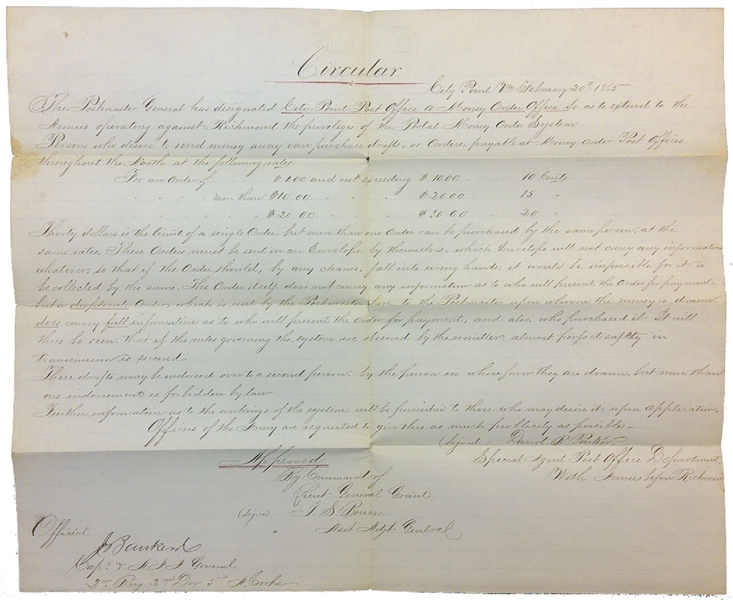 Circular
City Point Va February 20th 1865
The Postmaster General has designated City Point Post Office a Money Order Office so as to extend to the
Armies operating against Richmond the privilege of the Postal Money Order System
Persons who desire to send money away can purchase drafts, or Orders, payable at Money Order Post Offices
throughout the North at the following rates
For an Order of $1.00 and not exceeding $10.00 10 Cents
more than $10.00 $20.00 15 "
$20.00 $30.00 20 "
Thirty dollars is the limit of a single Order but more than one Order can be purchased by the same person, at the
same rates. These Orders must be sent in an Envelope by themselves, which Envelope will not carry any information
whatever, so that if the Order should, by any chance, fall into wrong hands it would be impossible for it to
be collected by the same. The Order itself does not carry any information as to who will present the Order for payment
but a duplicate Order, which is sent by the Postmaster here to the Postmaster upon whom the money is drawn
does carry full information as to who will present the Order for payment, and also who purchased it. It will
thus be seen, that if the rules governing the system are observed by the remitter almost perfect safety in
transmission is secured.
These drafts may be endorsed over to a second person, by the person in whose favor they are drawn, but more than
one endorsement is forbidden by law.
Further information as to the workings of the system will be furnished to those who may desire it, upon application.
Officers of the Army are requested to give this as much publicity as possible—
(Signed) David B Parker
Special Agent Post Office Department
With Armies before Richmond
Approved
By Command of
Lieut General Grant
(Signed) T S Bowers
Asst Adjt General
Official
Capt & A A A General
3rd Brig 2nd Div 5th A Corps